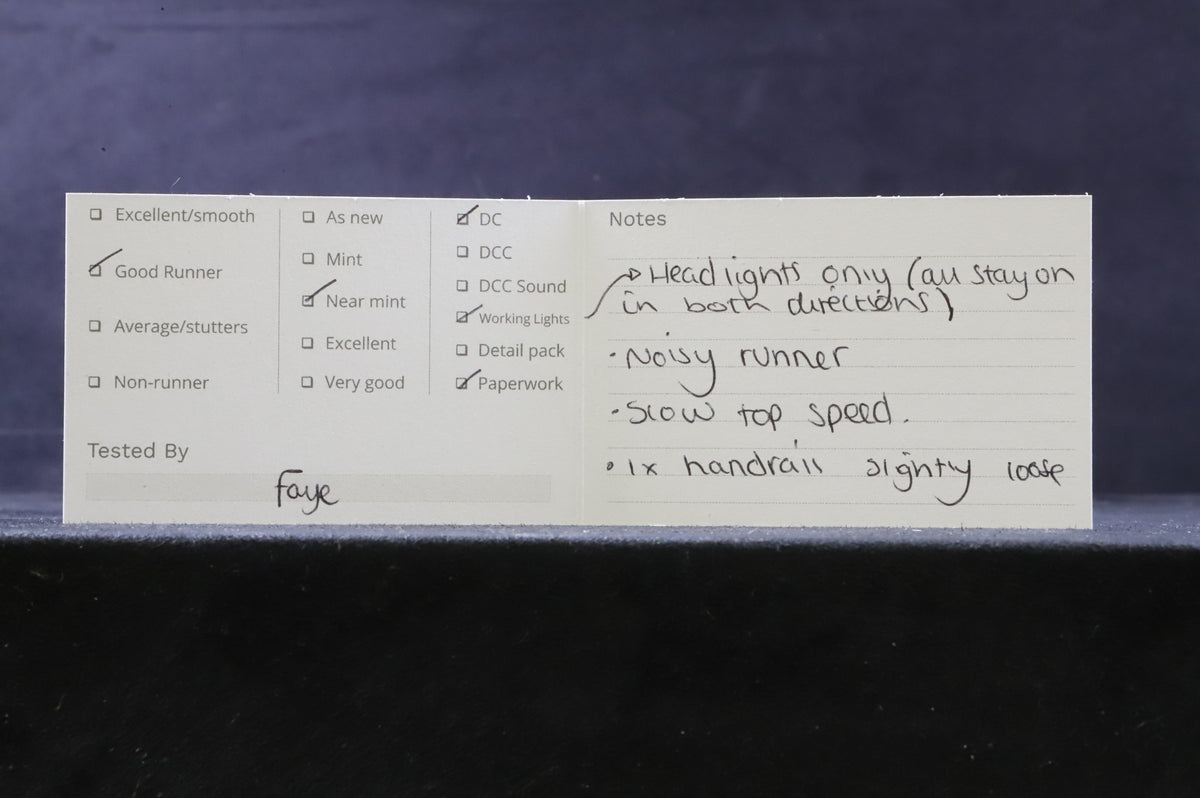 Excellent/smooth
Good Runner
Average/stutters
Non-runner
Tested By
Faye
As new
Mint
Near mint
Excellent
Very good
DC
DCC
DCC Sound
Working Lights
Detail pack
Paperwork
Notes
Headlights only (all stay on
in both directions)
• Noisy runner
• Slow top speed.
• 1x handrail slighty loose